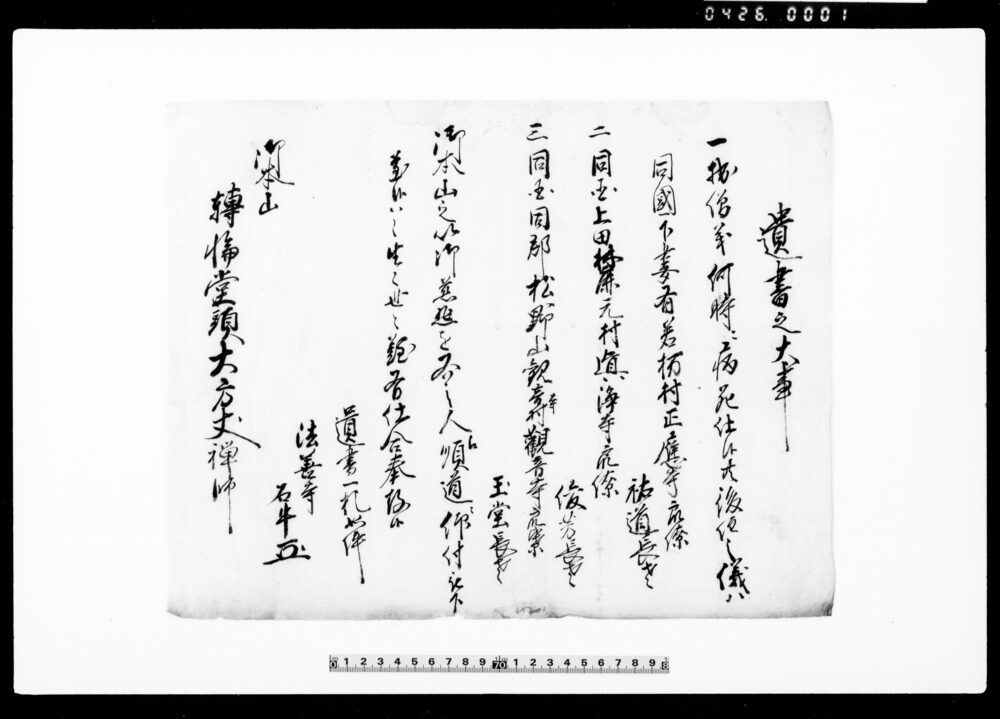 0426. 0001
遺書之大事
一拙僧義何時ニ病死仕候共後住之儀ハ
同國下妻有若柳村正應寺衆寮
祐道長老
二同国上田元村真海寺衆寮
俊芳長老
三同国同郡松野山観音寺衆寮
玉堂長老
御本山之以御慈悲を右之人ゟ順道ニ仰付被下
置候ハヽ生々世々難有仕合奉存候
遺書一札如件
法善寺
石牛
御本山
轉輪堂頭大方丈禅師
0 1 2 3 4 5 6 7 8 9 70 1 2 3 4 5 6 7 8 9 8